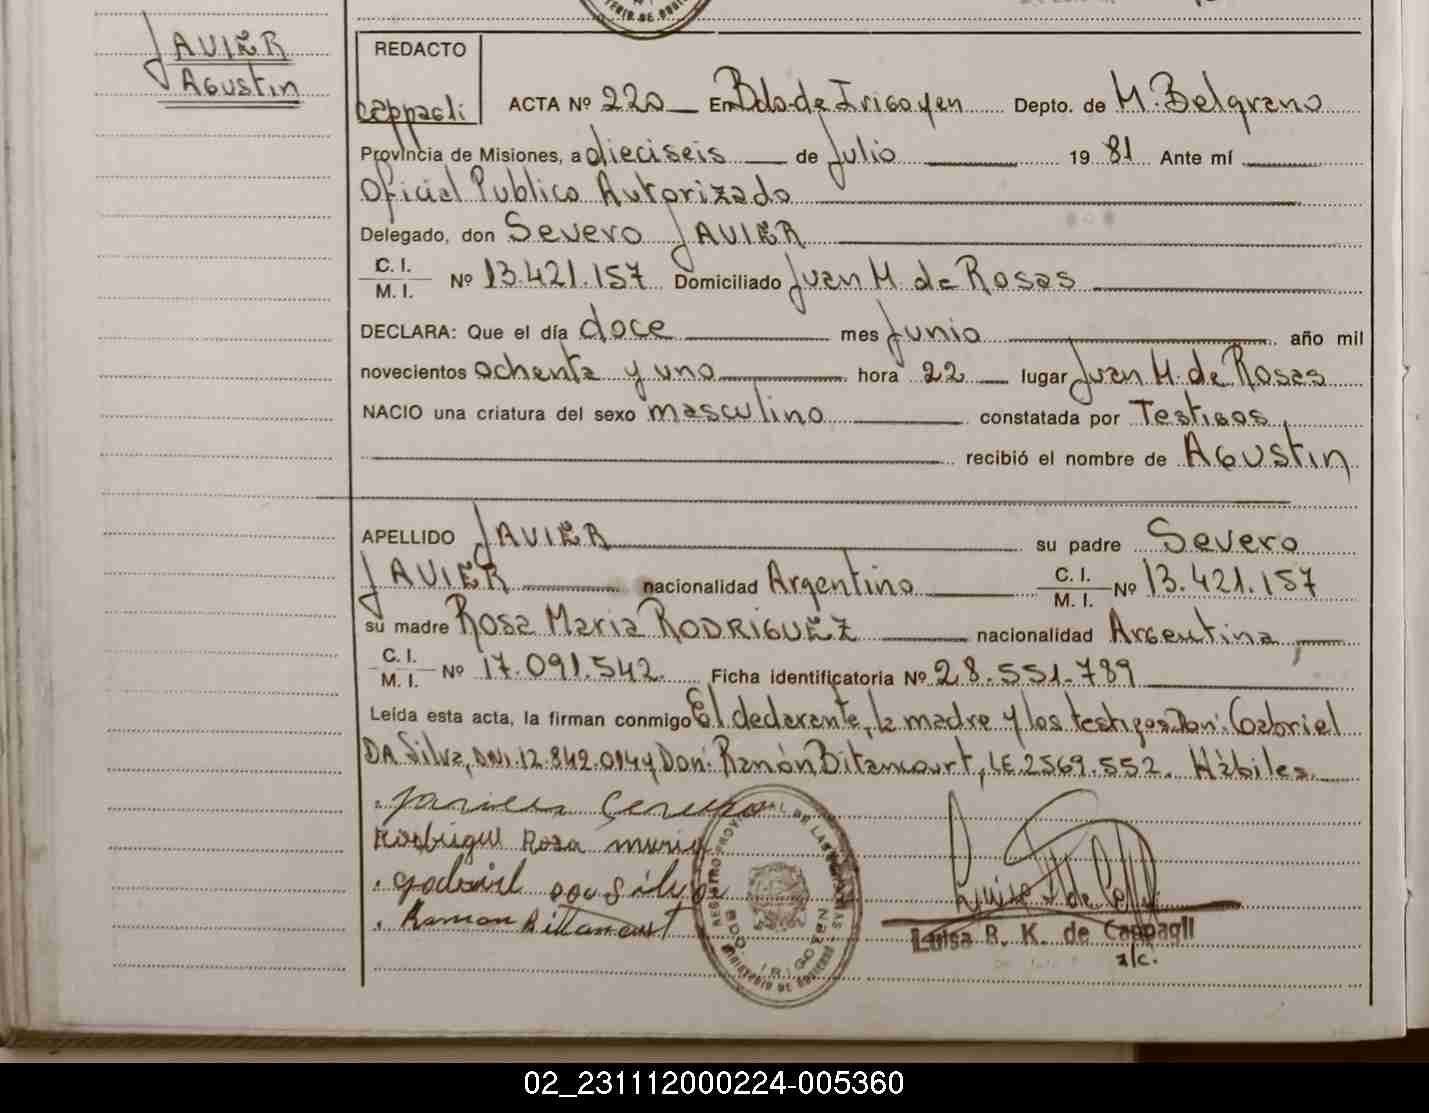 JAVIER
Agustin
REDACTO
Cappagli
ACTA Nº 220 En Bdo. de Irigoyen Depto. de M. Belgrano
Provincia de Misiones, a dieciseis de Julio 19 81 Ante mí
Oficial Publico Autorizado
Delegado, don Severo JAVIER
C. I.
M. I. Nº 13.421.157 Domiciliado Juan M. de Rosas
DECLARA: Que el día doce mes Junio año mil
novecientos ochenta y uno hora 22 lugar Juan M. de Rosas
NACIO una criatura del sexo masculino constatada por Testigos
recibió el nombre de AGUSTIN
APELLIDO JAVIER su padre Severo
JAVIER nacionalidad Argentino C. I.
M. I. Nº 13.421.157
su madre Rosa Maria RODRIGUEZ nacionalidad Argentina
C. I.
M. I. Nº 17.091.542 Ficha identificatoria Nº 28.551.789
Leída esta acta, la firman conmigo El declarante, la madre y los testigos Don: Gabriel
DA Silva, DNI. 12.842.014 y Don: Ramón Bitancourt, LE 2569.552. Hábiles.
Rodrigue Rosa maria
Ramon Bittancourt
REGISTRO PROVINCIAL DE LAS PERSONAS
BDO. IRIGOYEN
MINISTERIO DE GOBIERNO
Luisa R. K. de Cappagli
a/c.
02_231112000224-005360